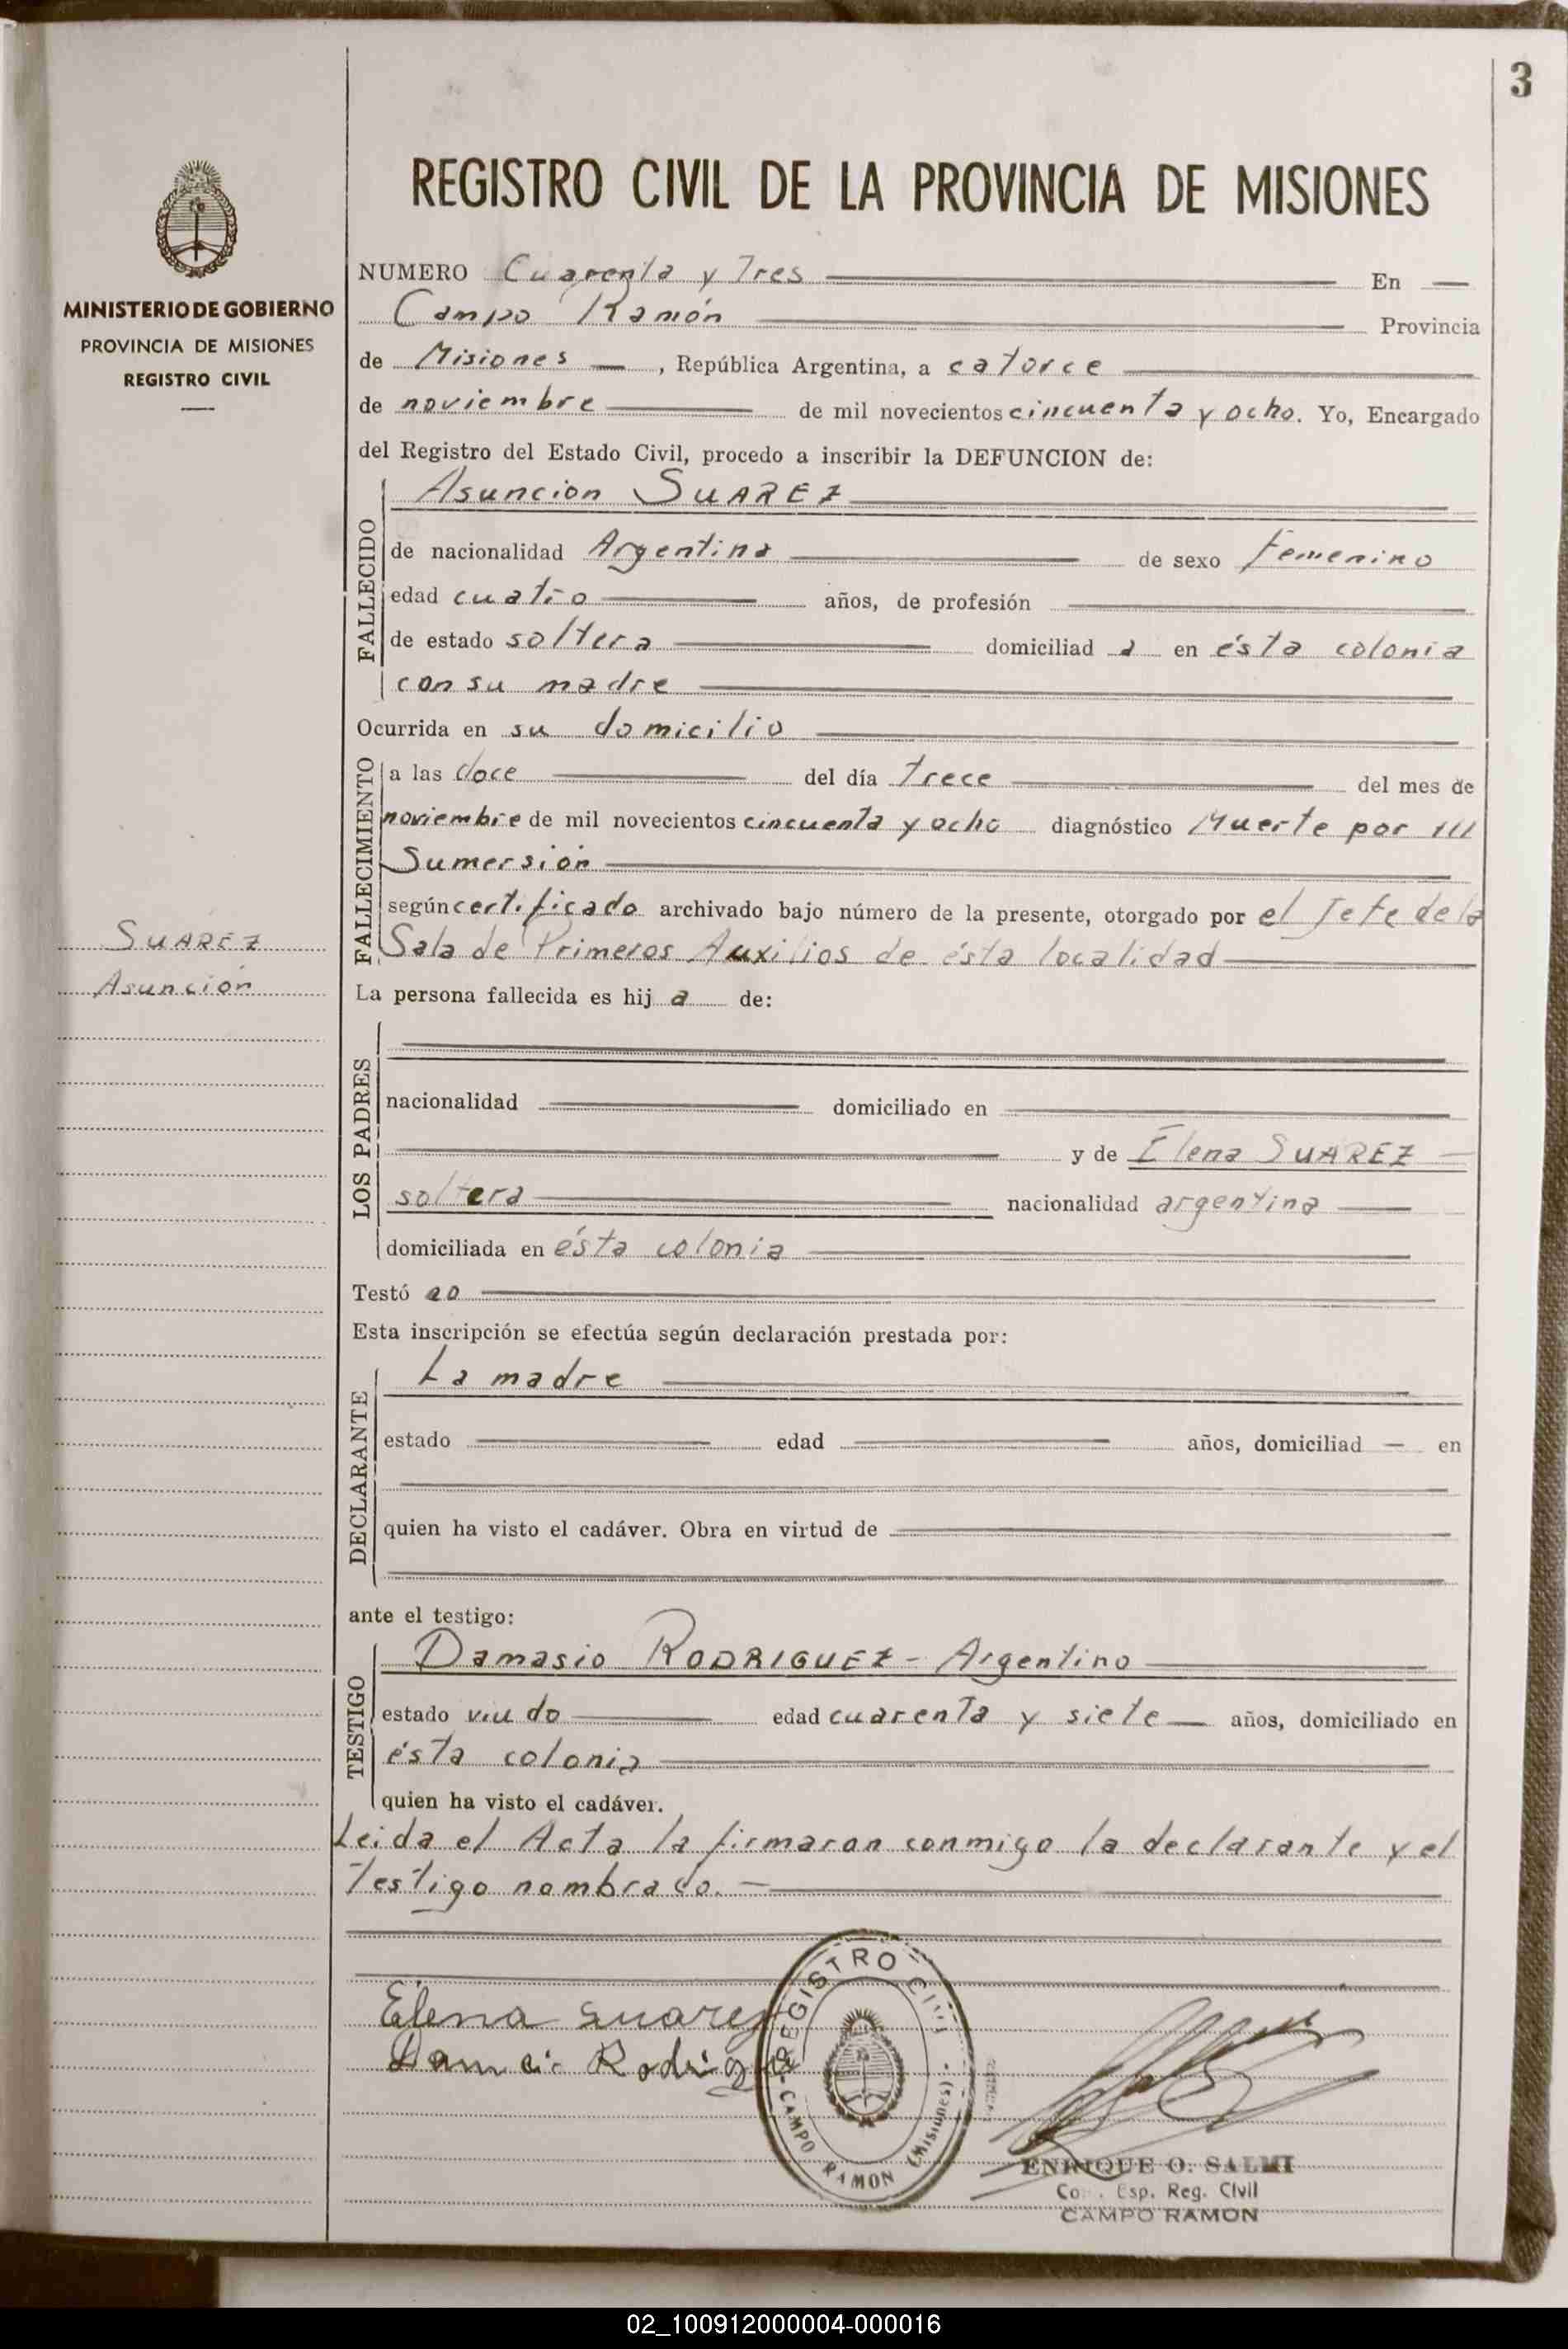 3
REGISTRO CIVIL DE LA PROVINCIA DE MISIONES
MINISTERIO DE GOBIERNO
PROVINCIA DE MISIONES
REGISTRO CIVIL
NUMERO Cuarenta y Tres En
Campo Ramón Provincia
de Misiones , República Argentina, a catorce
de noviembre de mil novecientos cincuenta y ocho. Yo, Encargado
del Registro del Estado Civil, procedo a inscribir la DEFUNCION de:
FALLECIDO
Asuncion SUAREZ
de nacionalidad Argentina de sexo Femenino
edad cuatro años, de profesión
de estado soltera domiciliad a en ésta colonia
con su madre
Ocurrida en su domicilio
FALLECIMIENTO
a las doce del día trece del mes de
noviembre de mil novecientos cincuenta y ocho diagnóstico Muerte por
Sumersión
según certificado archivado bajo número de la presente, otorgado por el Jefe de la
Sala de Primeros Auxilios de ésta localidad
SUAREZ
Asunción
La persona fallecida es hij a de:
LOS PADRES
nacionalidad domiciliado en
y de Elena SUAREZ
soltera nacionalidad argentina
domiciliada en ésta colonia
Testó no
Esta inscripción se efectúa según declaración prestada por:
DECLARANTE
La madre
estado edad años, domiciliad en
quien ha visto el cadáver. Obra en virtud de
ante el testigo:
TESTIGO
Damasio RODRIGUEZ - Argentino
estado viudo edad cuarenta y siete años, domiciliado en
ésta colonia
quien ha visto el cadáver.
Leida el Acta la firmaron conmigo la declarante y el
testigo nombrado.
Elena Suarez
REGISTRO CIVIL
CAMPO RAMON (Misiones)
ENRIQUE O. SALMI
Esp. Reg. Civil
CAMPO RAMON
02_100912000004-000016